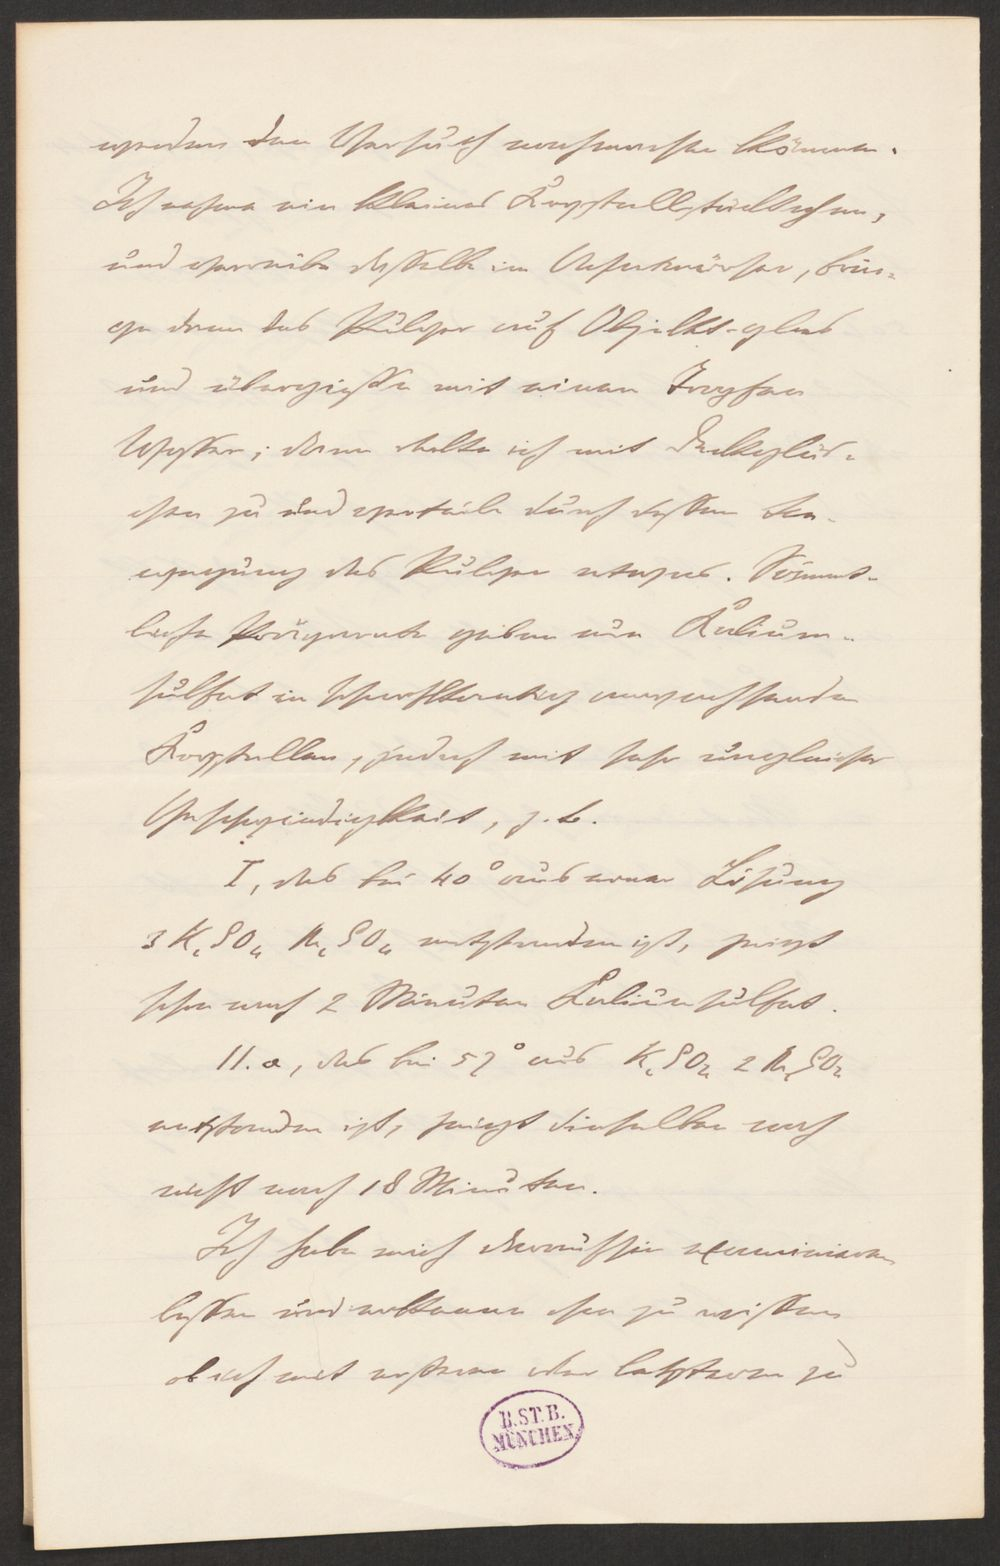 werden den Versuch nachmachen können.
Ich nehme ein kleines Krystallstückchen,
und verreibe dasselbe im Achatmörser, brin-
ge dann das Pulver auf Objekt-glas
und übergiesse mit einem Tropfen
Wasser; dann decke ich mit Deckgläs-
chen zu und verteile durch dessen Be-
wegung das Pulver etwas. Sämmt-
liche Präparate geben nun Kalium-
sulfat in auswachsenden
Krystallen, jedoch mit sehr ungleicher
Geschwindigkeit, z. B.
I, das bei 40° aus einer Lösung
3 K₂SO₄ Na₂SO₄ entstanden ist, zeigt
schon nach 2 Minuten Kaliumsulfat.
II. a, das bei 57° aus K₂SO₄ 2 Na₂SO₄
entstanden ist, zeigt dieselben noch
nicht nach 18 Minuten.
Ich habe mich daraufhin examinieren
lassen und ohne zu wissen
ob ich mit ersterem oder letzterem zu
B.ST.B.
MÜNCHEN